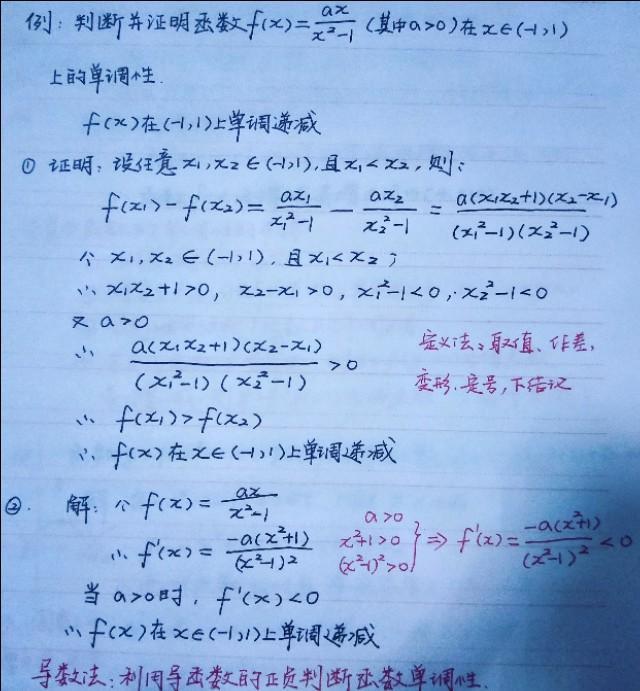 例：判断并证明函数f(x)=ax/(x²-1) (其中a>0)在x∈(-1,1)
上的单调性.
f(x)在(-1,1)上单调递减
① 证明：设任意x₁,x₂∈(-1,1),且x₁<x₂,则：
f(x₁)-f(x₂)=ax₁/(x₁²-1) - ax₂/(x₂²-1) = a(x₁x₂+1)(x₂-x₁)/((x₁²-1)(x₂²-1))
∵ x₁,x₂∈(-1,1),且x₁<x₂;
∴ x₁x₂+1>0, x₂-x₁>0, x₁²-1<0, x₂²-1<0
又 a>0
∴ a(x₁x₂+1)(x₂-x₁)/((x₁²-1)(x₂²-1)) >0
定义法：取值、作差,
变形.定号,下结论
∴ f(x₁)>f(x₂)
∴ f(x)在x∈(-1,1)上单调递减
②. 解：∵ f(x)=ax/(x²-1)
∴ f'(x)=-a(x²+1)/(x²-1)²
a>0
x²+1>0
(x²-1)²>0
} ⇒ f'(x)=-a(x²+1)/(x²-1)² <0
当 a>0时, f'(x)<0
∴ f(x)在x∈(-1,1)上单调递减
导数法：利用导函数的正负判断函数单调性.